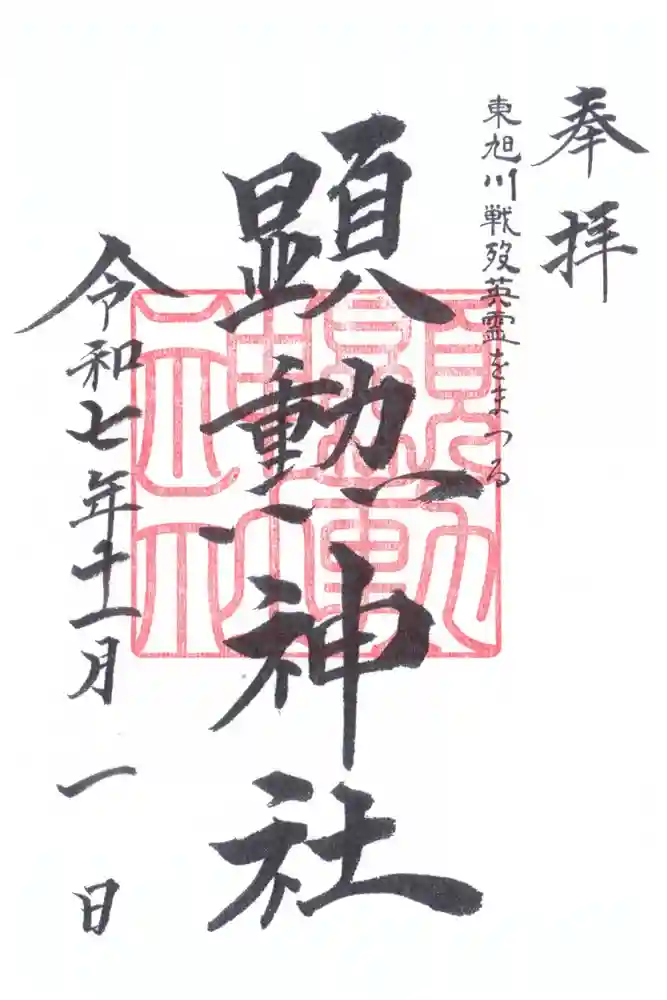 奉拝
東旭川戦歿英霊をまつる
顕勲神社
令和七年十一月一日
顕勲神社